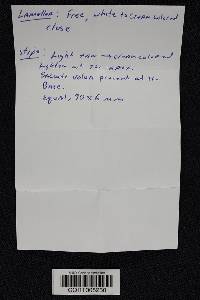 Lamellae: Free, white to cream colored
close
Stipe: Light tan to cream colored
lighter at the apex.
Saccate volva present at the
Base.
Equal, 90 x 6 mm